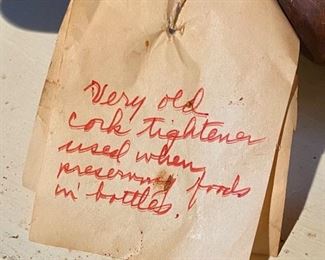 Very old
cork tightener
used when
preserving foods
in bottles.